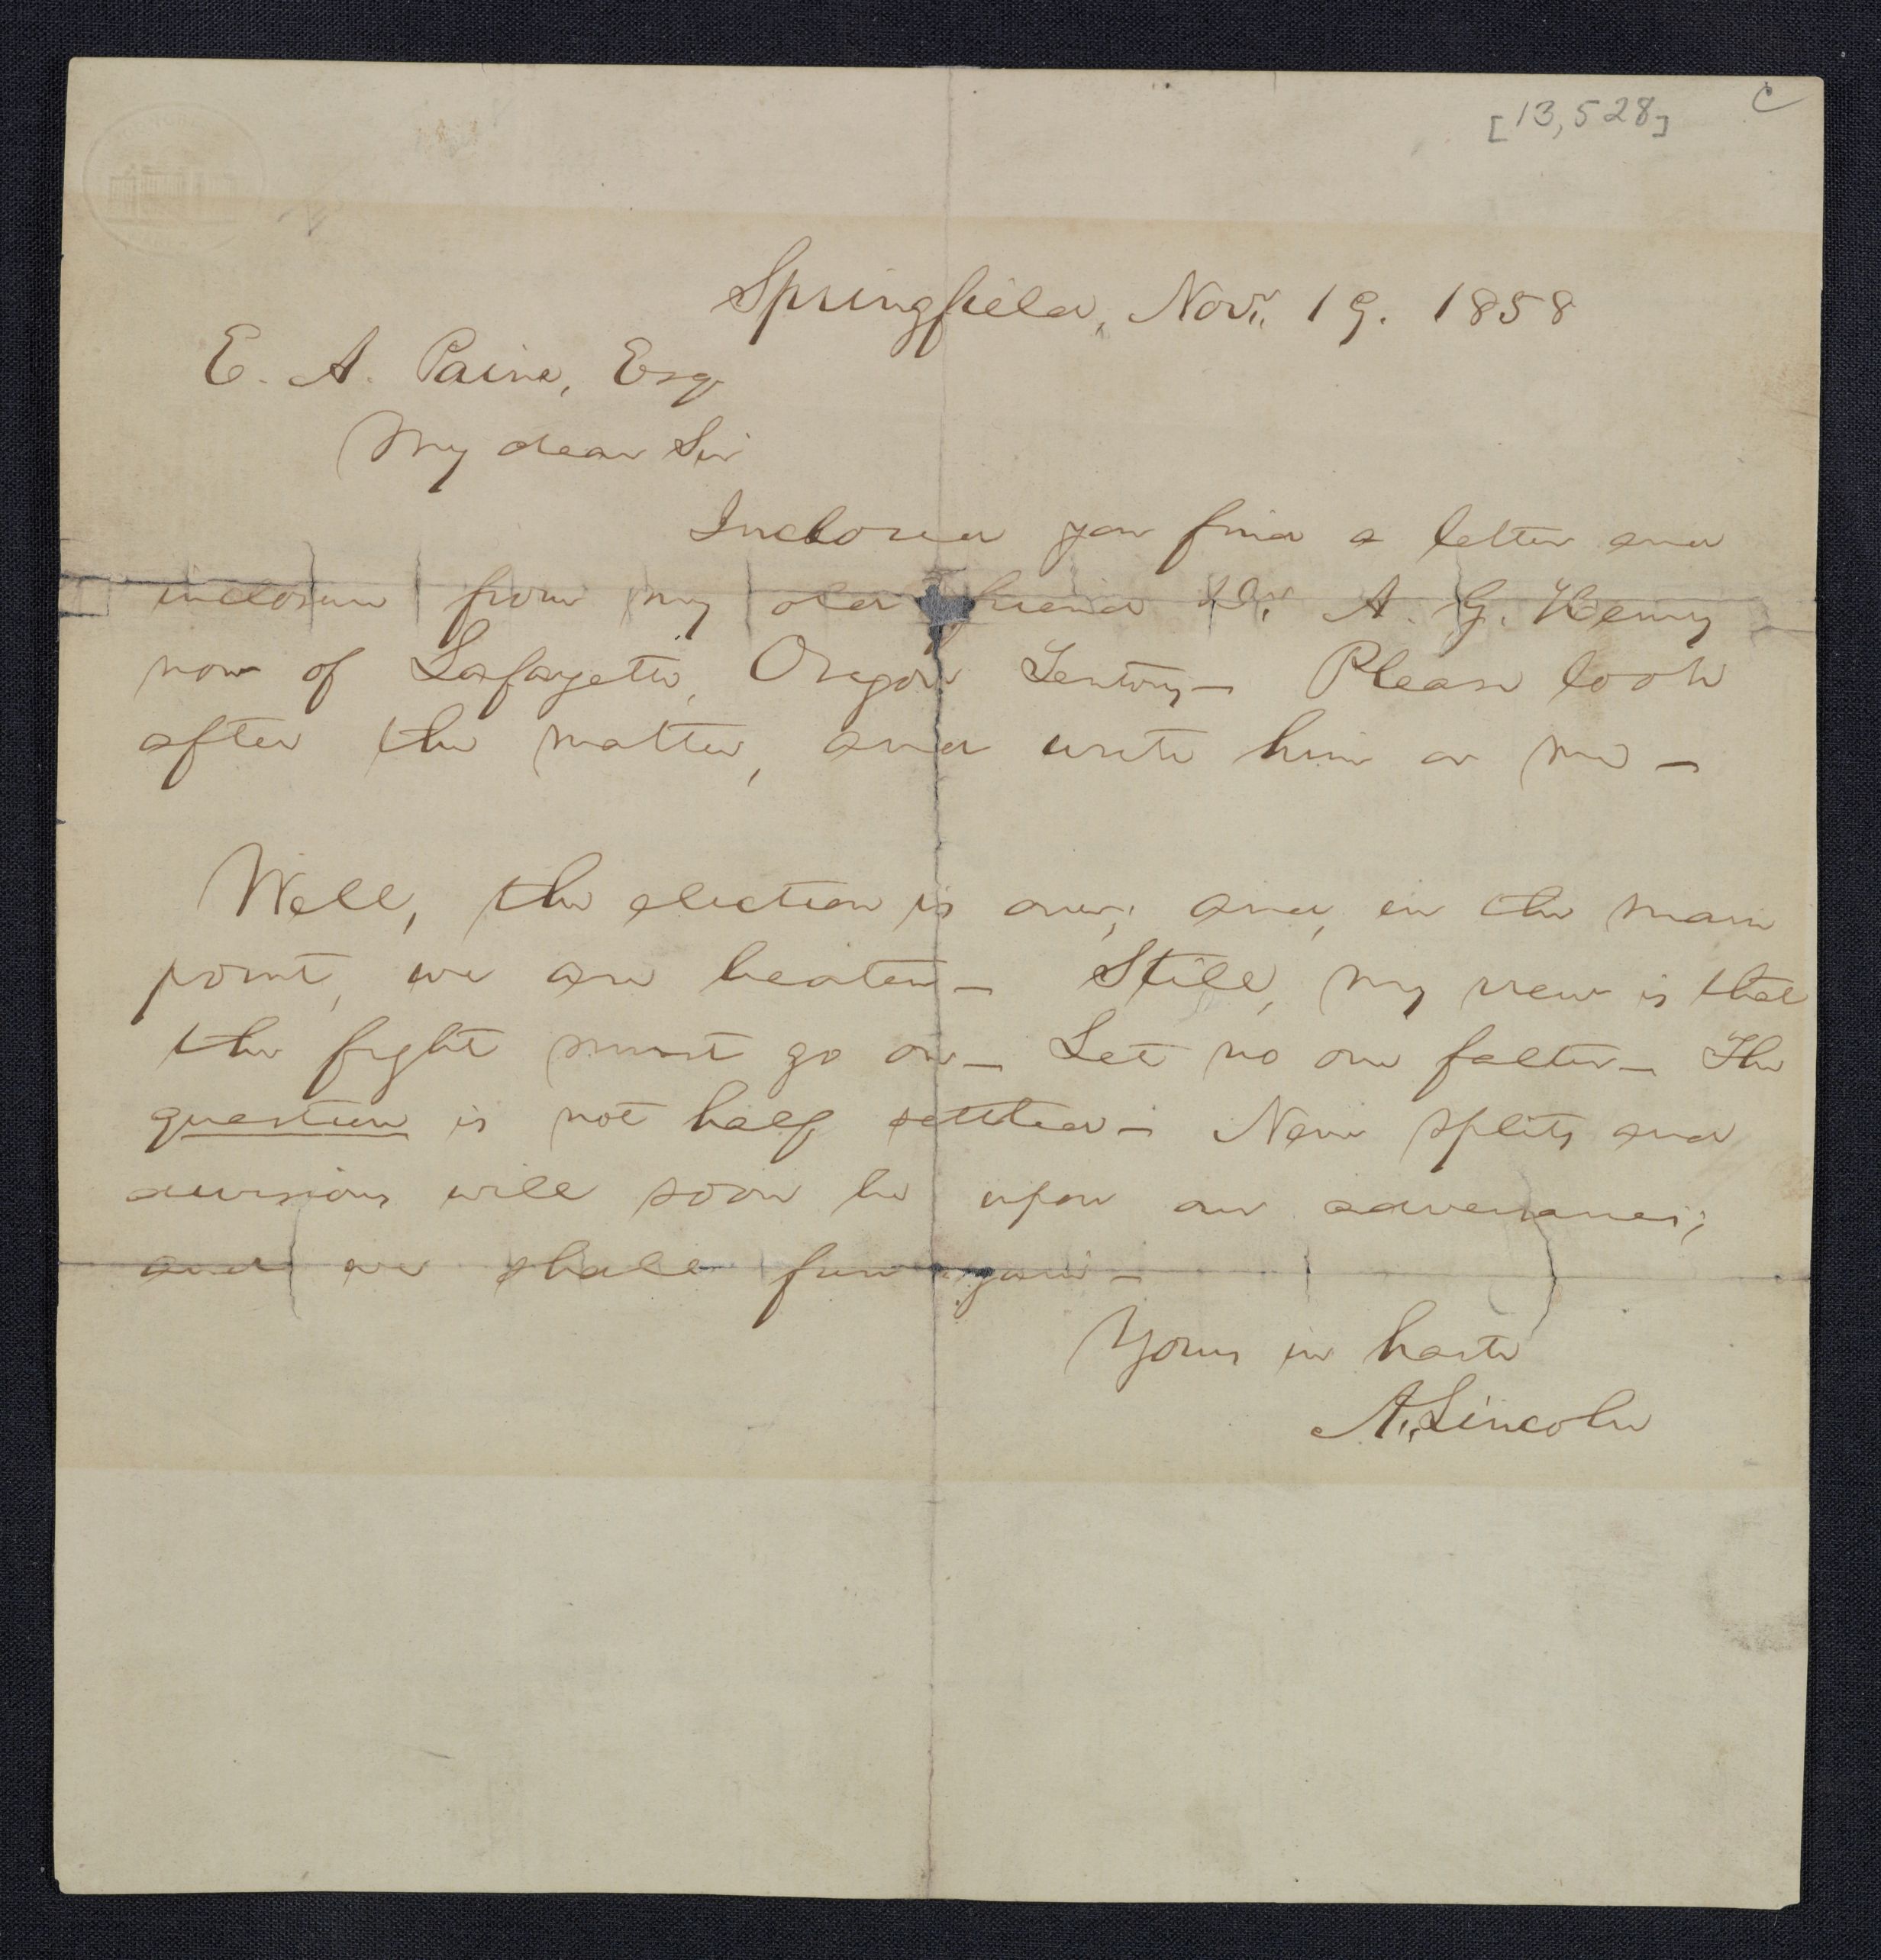 [13,528]
C
Springfield, Novr. 19. 1858
E. A. Paine, Esq
My dear Sir
Inclosed you find a letter and
inclosure from my old friend Dr. A. G. Henry
now of Lafayette, Oregon Teritory— Please look
after the matter, and write him or me—
Well, the election is over; and, in the main
point, we are beaten— Still, my view is that
the fight must go on— Let no one falter— The
question is not half settled— New splits and
divisions will soon be upon our adversaries;
and we shall fun again—
Yours in haste
A. Lincoln